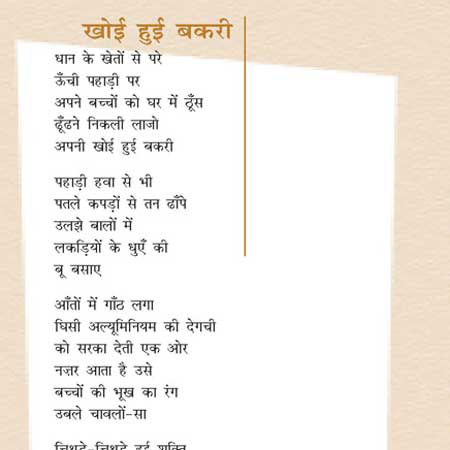 खोई हुई बकरी
धान के खेतों से परे
ऊँची पहाड़ी पर
अपने बच्चों को घर में ठूँस
ढूँढने निकली लाजो
अपनी खोई हुई बकरी
पहाड़ी हवा से भी
पतले कपड़ों से तन ढाँपे
उलझे बालों में
लकड़ियों के धुएँ की
बू बसाए
आँतों में गाँठ लगा
घिसी अल्यूमिनियम की देगची
को सरका देती एक ओर
नज़र आता है उसे
बच्चों की भूख का रंग
उबले चावलों-सा